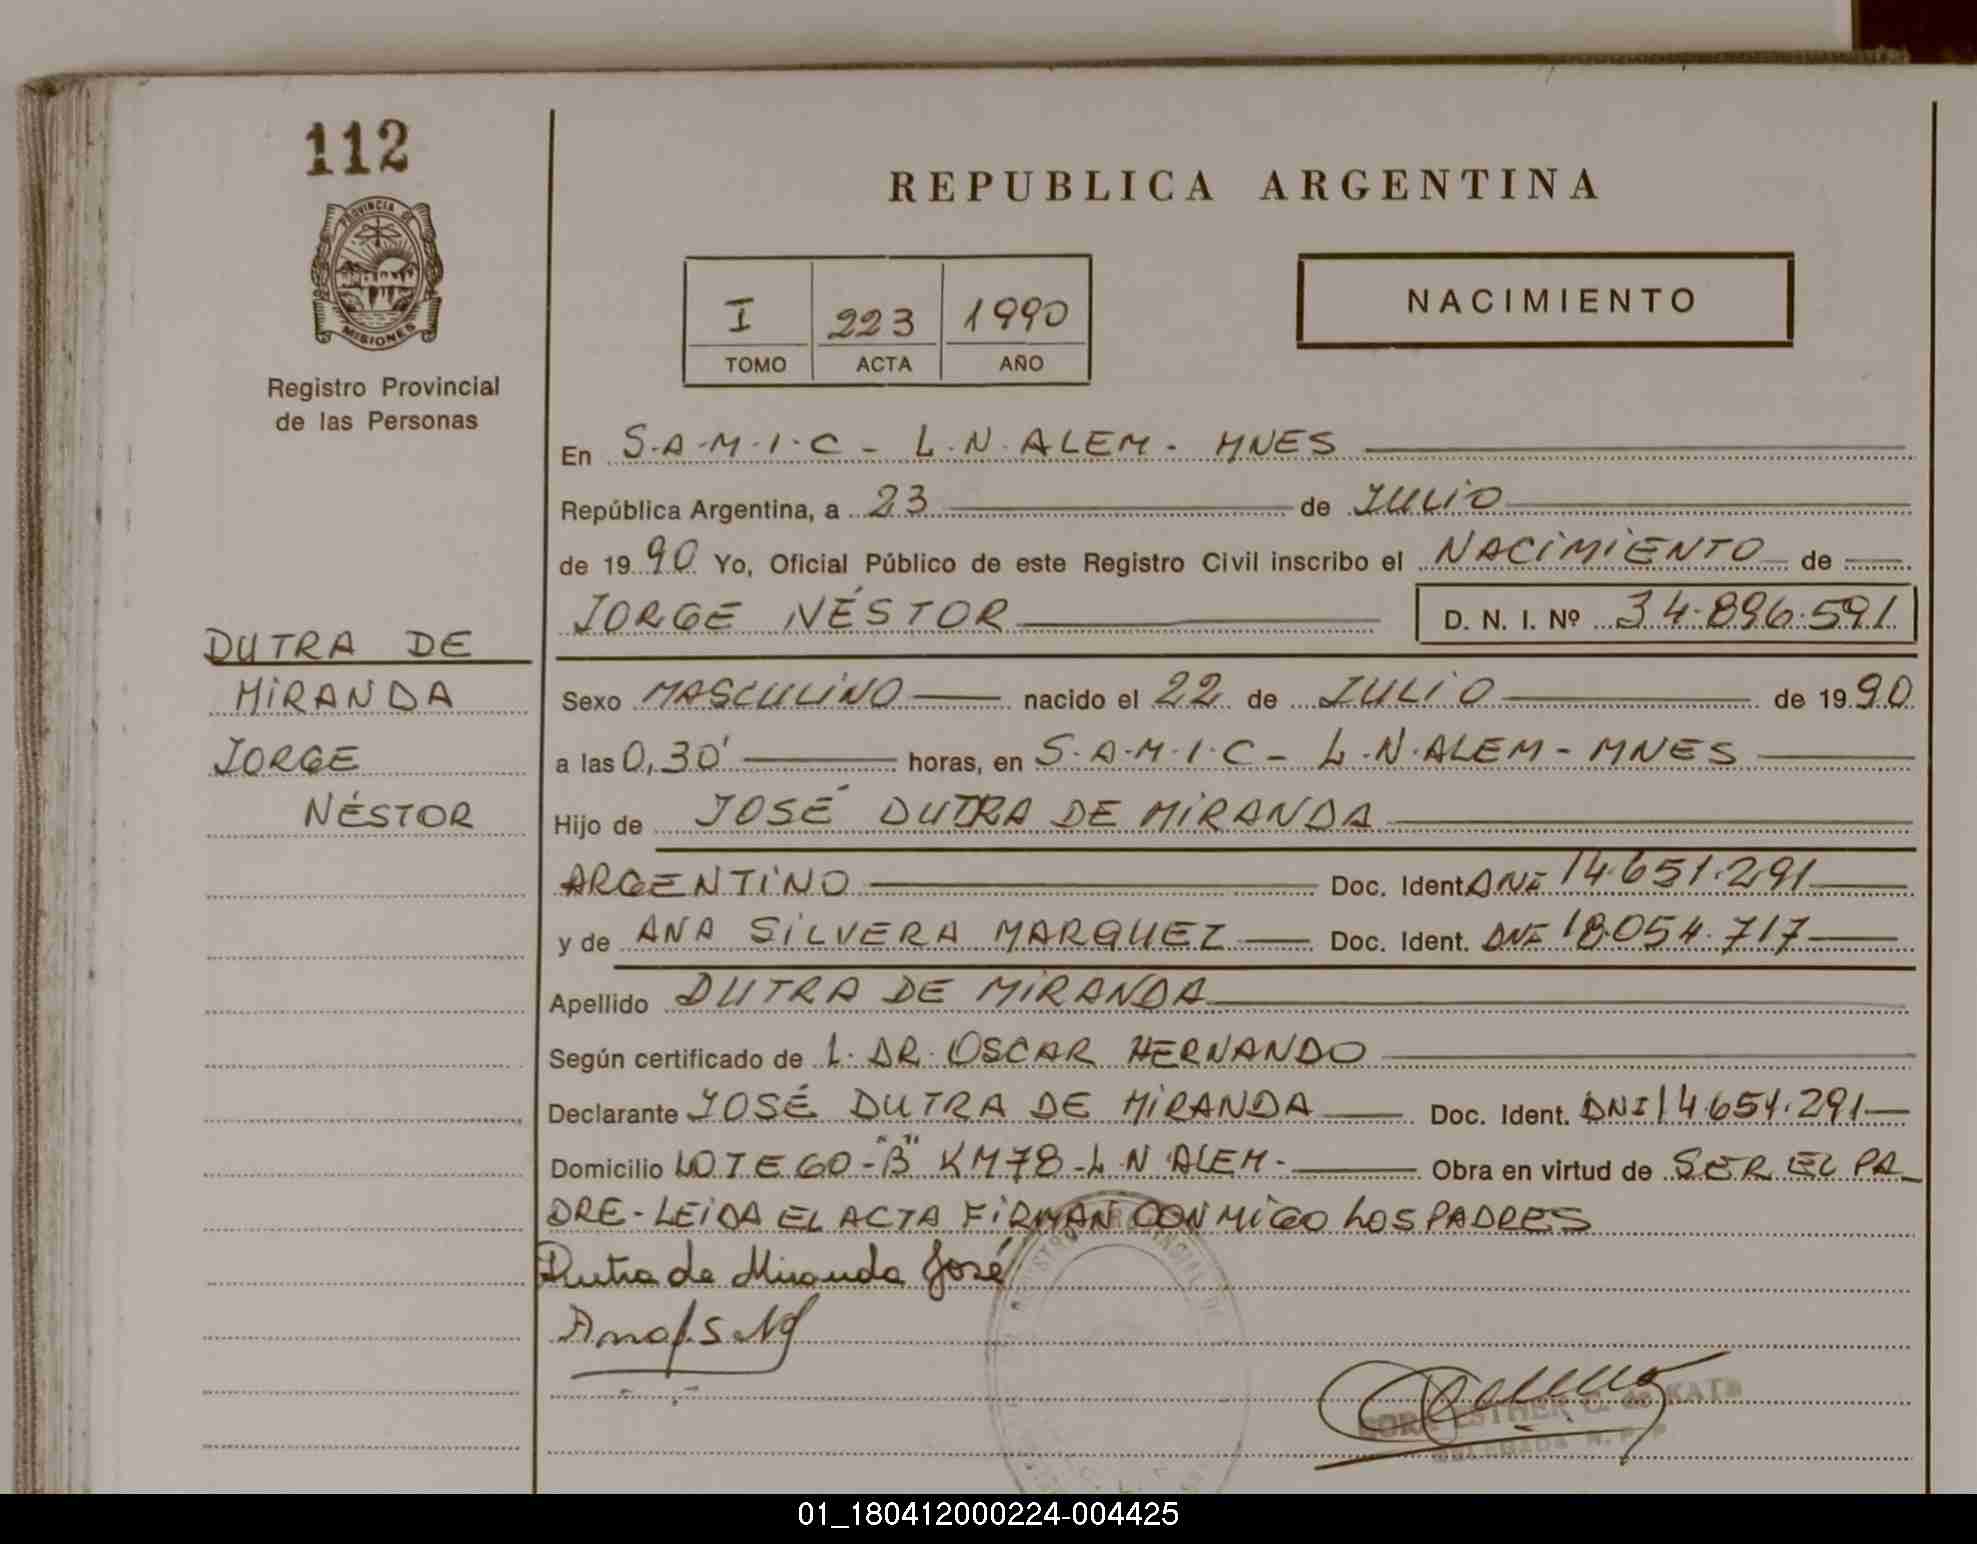 112
PROVINCIA DE
MISIONES
Registro Provincial
de las Personas
REPUBLICA ARGENTINA
I 223 1990
TOMO ACTA AÑO
NACIMIENTO
En S.A.M.I.C - L.N.ALEM - MNES
República Argentina, a 23 de JULIO
de 1990 Yo, Oficial Público de este Registro Civil inscribo el NACIMIENTO de
JORGE NÉSTOR D. N. I. Nº 34.896.591
DUTRA DE
MIRANDA
JORGE
NÉSTOR
Sexo MASCULINO nacido el 22 de JULIO de 1990
a las 0,30' horas, en S.A.M.I.C - L.N.ALEM - MNES
Hijo de JOSÉ DUTRA DE MIRANDA
ARGENTINO Doc. Ident. DNI 14.651.291
y de ANA SILVERA MARQUEZ Doc. Ident. DNI 18.054.717
Apellido DUTRA DE MIRANDA
Según certificado de L. DR. OSCAR HERNANDO
Declarante JOSÉ DUTRA DE MIRANDA Doc. Ident. DNI 14.651.291
Domicilio LOTE 60-"B" KM78-L.N.ALEM- Obra en virtud de SER EL PA_
DRE - LEIDA EL ACTA FIRMAN CONMIGO LOS PADRES
Dutra de Miranda José
ESTHER C. de KATZ
01_180412000224-004425